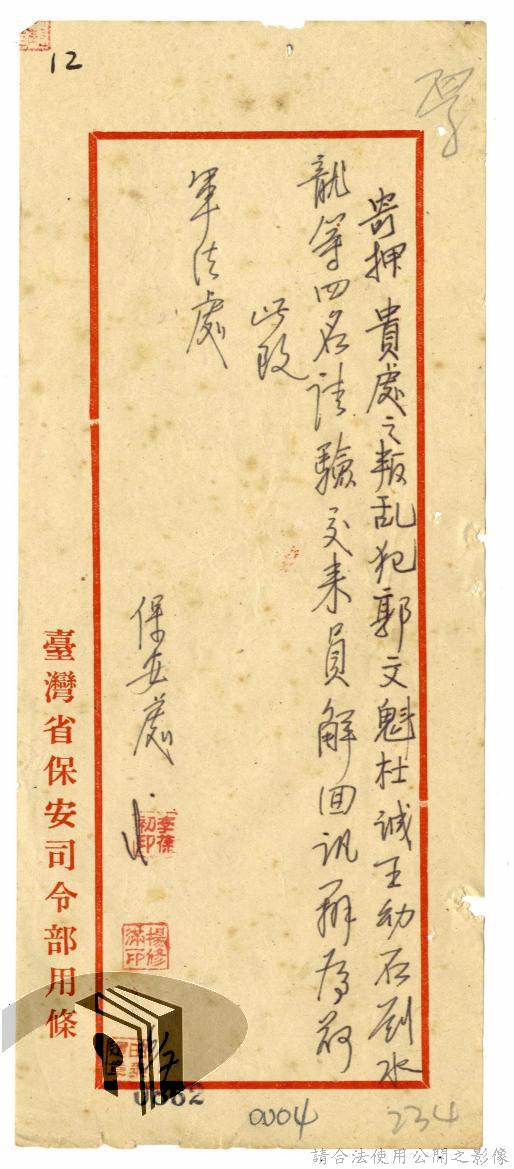 12
寄押貴處之叛乱犯郭文魁杜誠王幼石劉水
龍等四名請驗交来員解回訊辦為荷
此致
軍法處
保安處
楊修
滿印
臺灣省保安司令部用條
0662
0004
234
請合法使用公開之影像